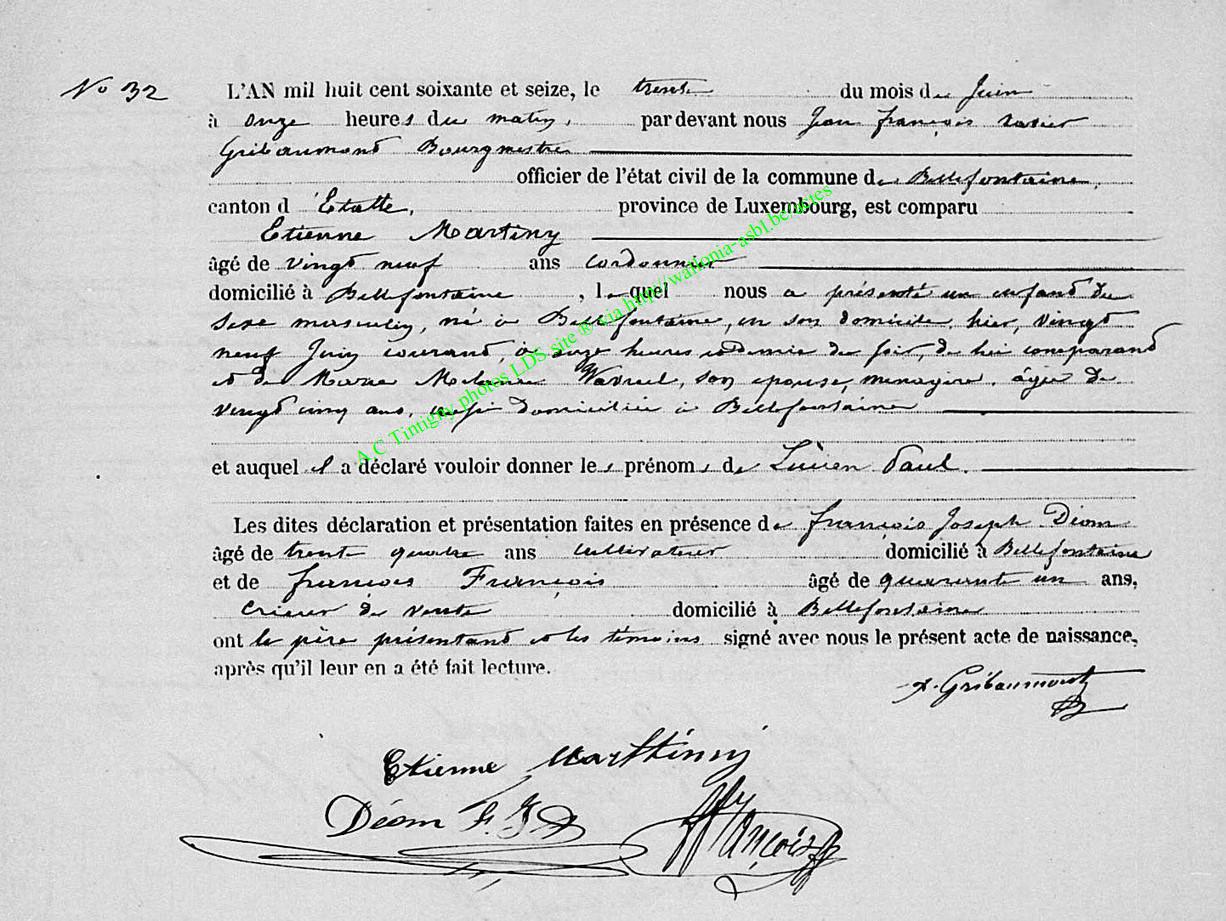 No 32
L'AN mil huit cent soixante et seize, le trente du mois de Juin
à onze heures du matin, par devant nous Jean françois xavier
Gribaumont Bourgmestre
officier de l'état civil de la commune de Bellefontaine,
canton d'Etalle, province de Luxembourg, est comparu
Etienne Martiny
âgé de vingt neuf ans cordonnier
domicilié à Bellefontaine, lequel nous a présenté un enfant du
sexe masculin, né à Bellefontaine, en son domicile, hier, vingt
neuf Juin courant, à onze heures et demie du soir, de lui comparant
et de Marie Wavreil, son épouse, ménagère, âgée de
vingt cinq ans, aussi domiciliée à Bellefontaine
et auquel il a déclaré vouloir donner les prénoms de Lucien Paul.
Les dites déclaration et présentation faites en présence de françois Joseph Déom
âgé de trente quatre ans cultivateur domicilié à Bellefontaine
et de françois François âgé de quarante un ans,
crieur de vente domicilié à Bellefontaine
ont le père présentant et les témoins signé avec nous le présent acte de naissance,
après qu'il leur en a été fait lecture.
x. Gribaumont
Etienne Marthiny
Déom F. J.
françois
A C Tintigny photos LDS site ® via http//wallonia-asbl.be/actes